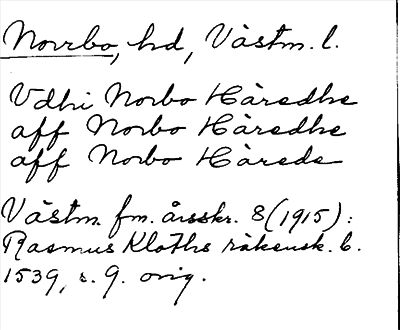 Norrbo, hd, Västm. l.
Vdhi Norbo Häredhe
aff Norbo Häredhe
aff Norbo Härede
Västm. fm. årsskr. 8 (1915):
Rasmus Kloths räkensk. b.
1539, s. 9. orig.